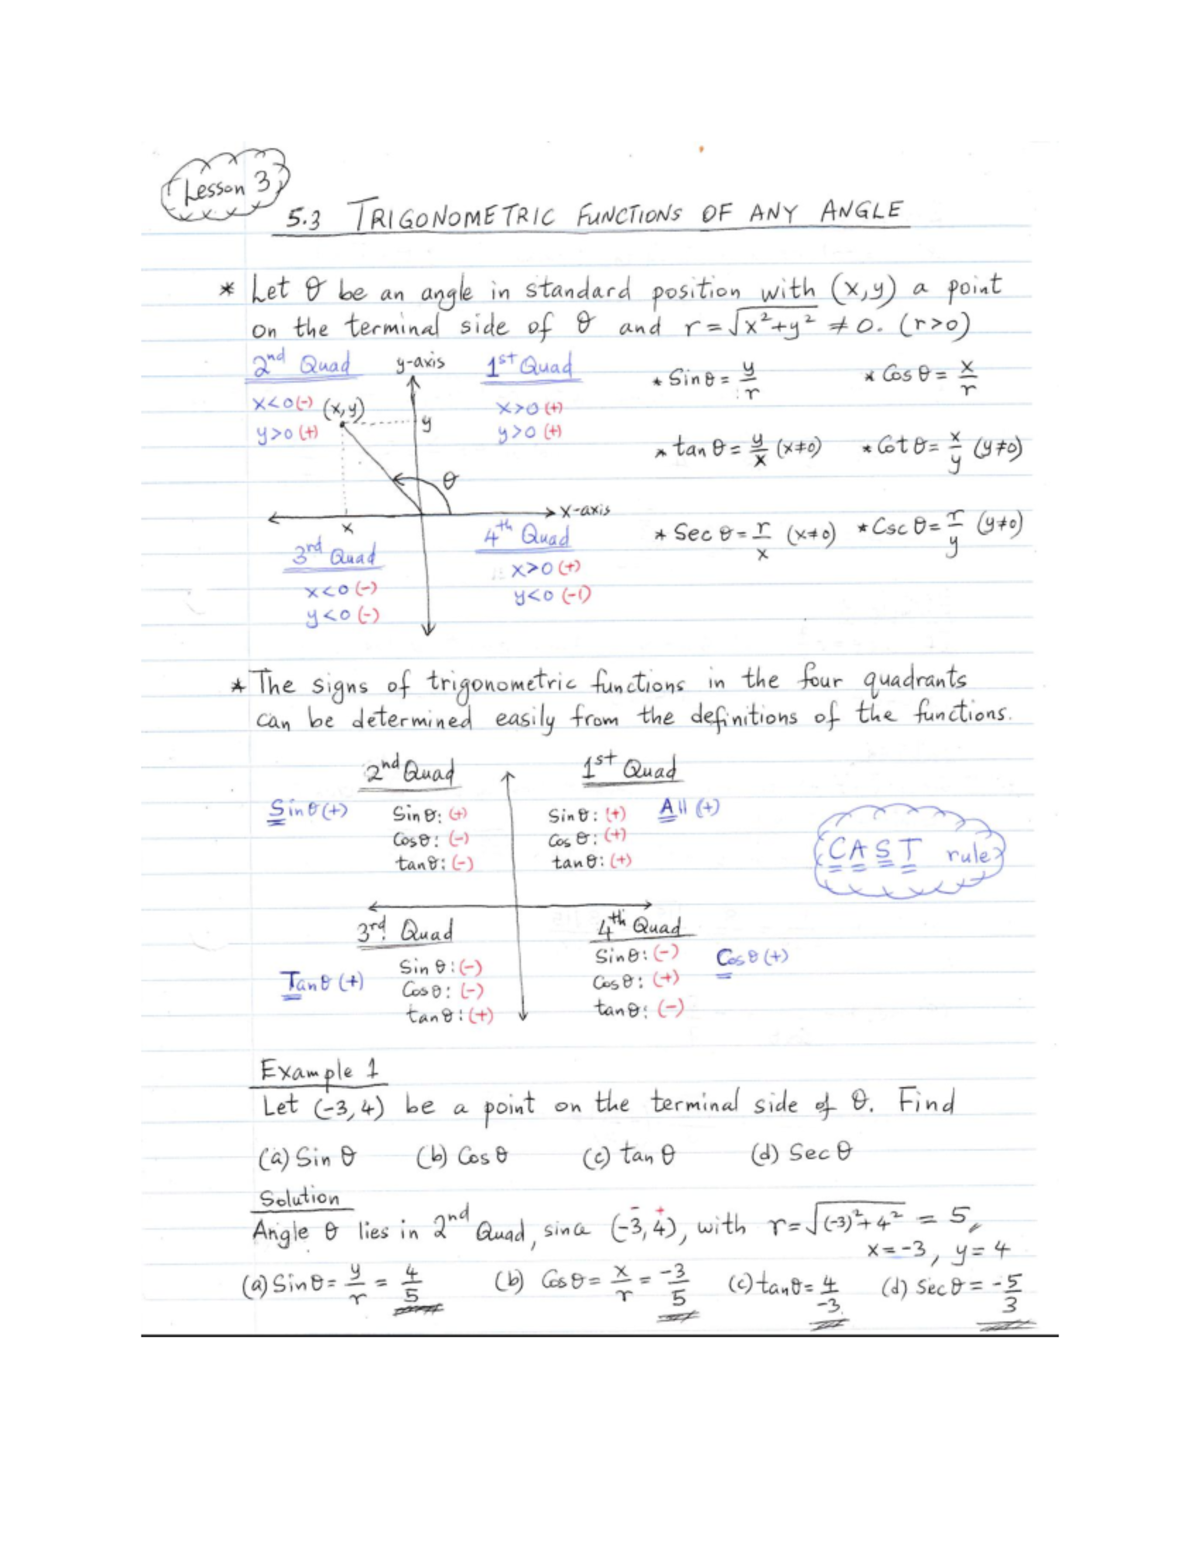 Lesson 3
5.3 TRIGONOMETRIC FUNCTIONS OF ANY ANGLE
* Let θ be an angle in standard position with (x,y) a point
on the terminal side of θ and r=√x²+y² ≠ 0. (r>0)
2nd Quad y-axis 1st Quad
x<0(-) (x,y) x>0 (+)
y>0 (+) y y>0 (+)
θ
x x-axis
3rd Quad 4th Quad
x<0 (-) x>0 (+)
y<0 (-) y<0 (-1)
* Sin θ = y/r * Cos θ = x/r
* tan θ = y/x (x≠0) * Cot θ = x/y (y≠0)
* Sec θ = r/x (x≠0) * Csc θ = r/y (y≠0)
* The signs of trigonometric functions in the four quadrants
can be determined easily from the definitions of the functions.
2nd Quad 1st Quad
Sin θ (+) Sin θ: (+) Sin θ: (+) All (+)
Cos θ: (-) Cos θ: (+)
tan θ: (-) tan θ: (+)
CAST rule
3rd Quad 4th Quad
Tan θ (+) Sin θ: (-) Sin θ: (-) Cos θ (+)
Cos θ: (-) Cos θ: (+)
tan θ: (+) tan θ: (-)
Example 1
Let (-3,4) be a point on the terminal side of θ. Find
(a) Sin θ (b) Cos θ (c) tan θ (d) Sec θ
Solution
Angle θ lies in 2nd Quad, since (-3, 4), with r=√(-3)²+4² = 5,
- +
x=-3, y=4
(a) Sin θ = y/r = 4/5 (b) Cos θ = x/r = -3/5 (c) tan θ = 4/-3 (d) Sec θ = -5/3